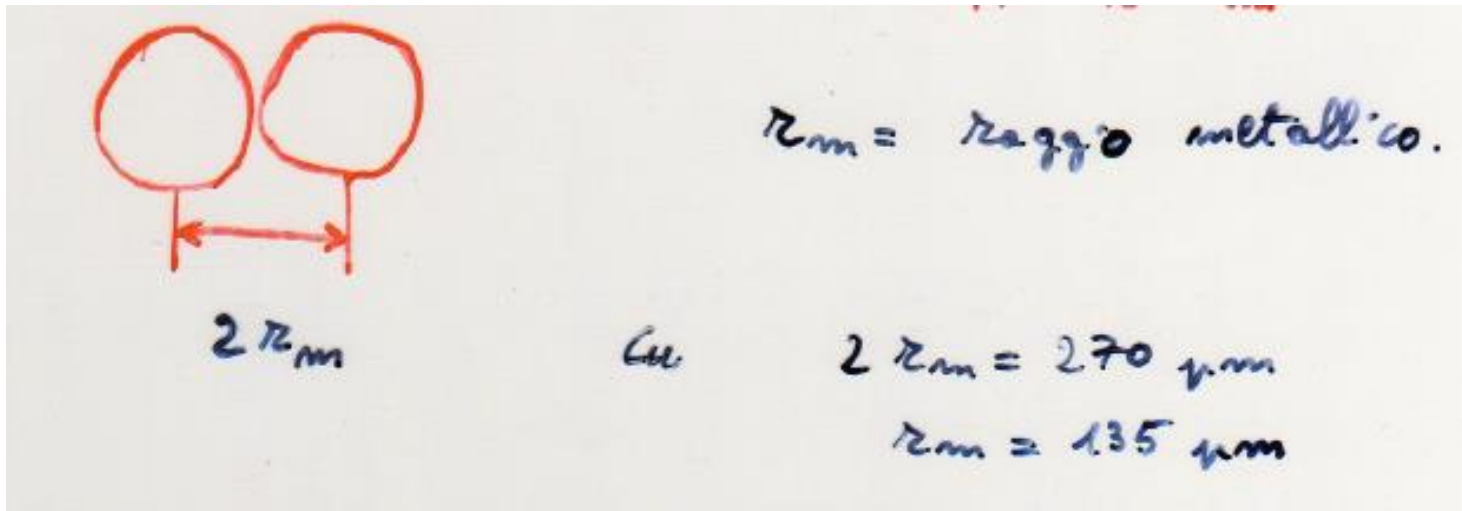 r_m = raggio metallico.
2 r_m
Cu 2 r_m = 270 pm
r_m = 135 pm